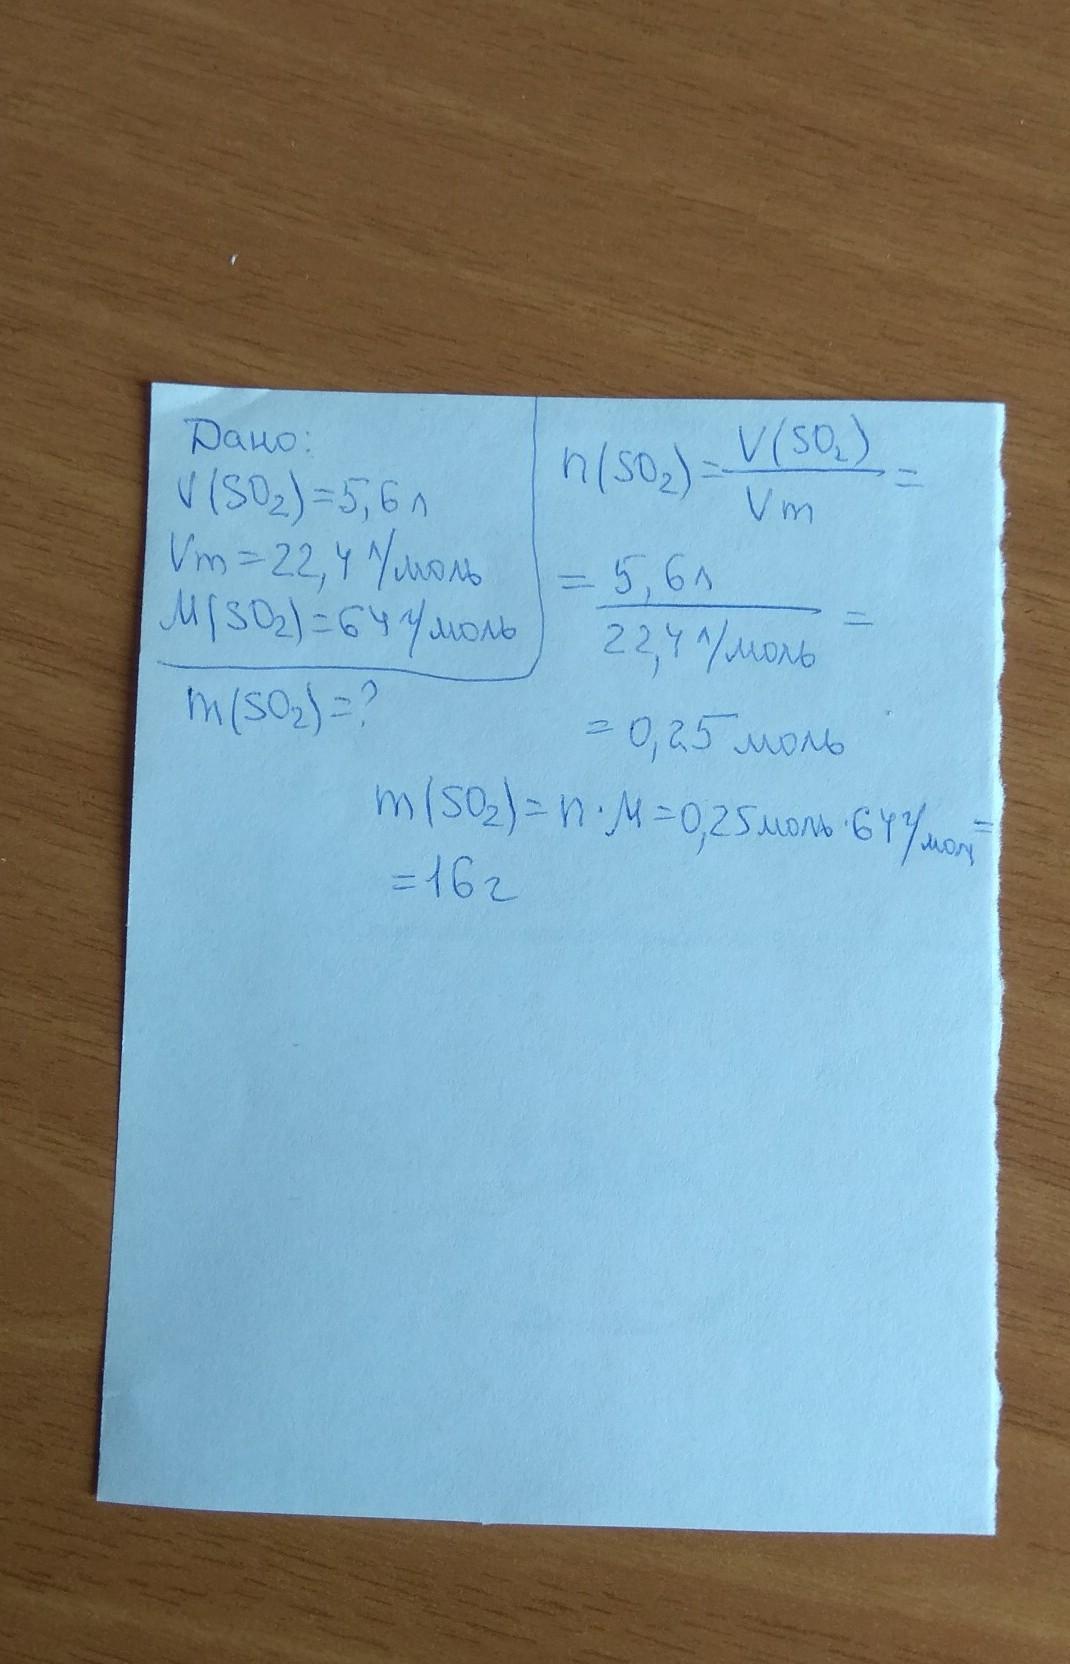 Дано:
V(SO₂)=5,6л
Vm=22,4 л/моль
M(SO₂)=64 г/моль
m(SO₂)=?
n(SO₂)=V(SO₂)/Vm=
=5,6л/22,4 л/моль=
=0,25 моль
m(SO₂)=n·M=0,25моль·64 г/мол=
=16г